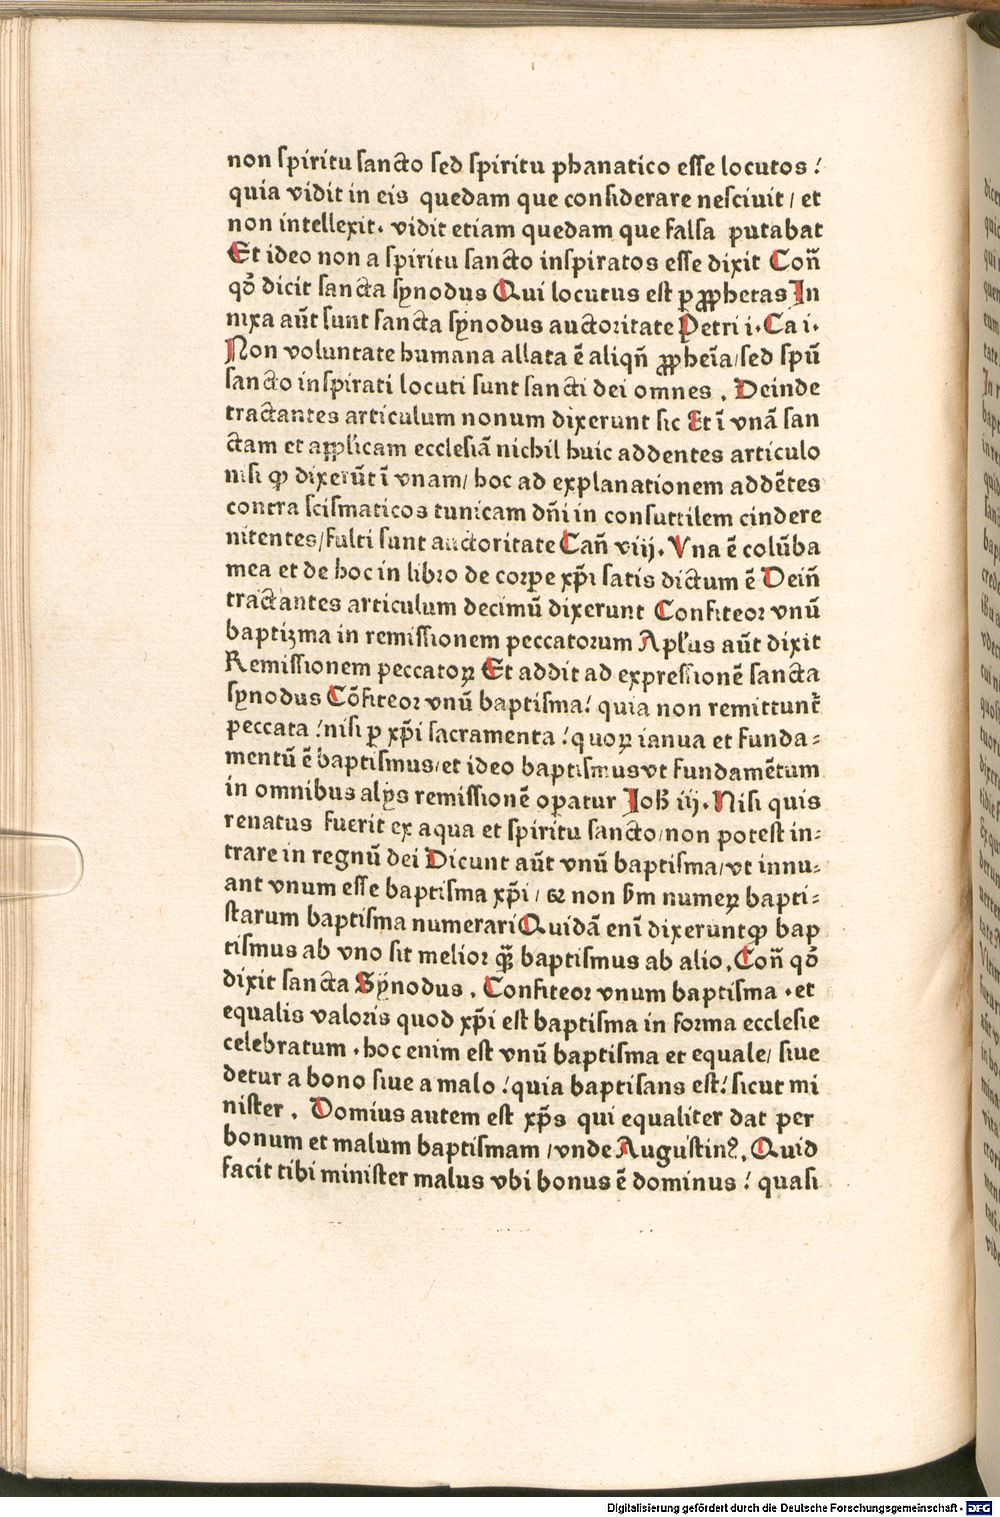 non ſpiritu ſancto ſed ſpiritu phanatico eſſe locutos !
quia vidit in eis quedam que conſiderare neſciuit / et
non intellexit. vidit etiam quedam que falſa putabat
Et ideo non a ſpiritu ſancto inſpiratos eſſe dixit Coñ
qō dicit ſancta ſynodus Qui locutus eſt ꝑ ꝓphetas In
nixa aūt ſunt ſancta ſynodus auctoritate Petri i. Ca i.
Non voluntate humana allata ē aliqñ ꝓpheīa/ſed ſpū
ſancto inſpirati locuti ſunt ſancti dei omnes . Deinde
tractantes articulum nonum dixerunt ſic Et ī vnā ſan
ctam et apꝓlicam eccleſiā nichil huic addentes articulo
niſi ꝙ dixerūt ī vnam/ hoc ad explanationem addētes
contra ſciſmaticos tunicam dñi in conſuttilem cindere
nitentes/fulti ſunt auctoritate Cañ viij. Vna ē colūba
mea et de hoc in libro de corpe xp̄i ſatis dictum ē Deiñ
tractantes articulum decimū dixerunt Confiteor vnū
baptiʒma in remiſſionem peccatorum Apl'us aūt dixit
Remiſſionem peccatoꝝ Et addit ad expreſſionē ſancta
ſynodus Cōfiteor vnū baptiſma! quia non remittunt̄
peccata !niſi ꝑ xp̄i ſacramenta !quoꝝ ianua et funda⸗
mentū ē baptiſmus/et ideo baptiſmus vt fundamētum
in omnibus alijs remiſſionē operatur Joh̄ iij. Niſi quis
renatus fuerit ex aqua et ſpiritu ſancto/non poteſt in⸗
trare in regnū dei Dicunt aūt vnū baptiſma/vt innu⸗
ant vnum eſſe baptiſma xp̄i / & non ẜm numeꝝ bapti⸗
ſtarum baptiſma numerari Quidā enī dixerunt ꝙ bap
tiſmus ab vno ſit melior q̄ꝫ baptiſmus ab alio. Coñ qō
dixit ſancta Synodus . Confiteor vnum baptiſma . et
equalis valoris quod xp̄i eſt baptiſma in forma eccleſie
celebratum . hoc enim eſt vnū baptiſma et equale/ ſiue
detur a bono ſiue a malo !quia baptiſans eſt! ſicut mi
niſter . Domius autem eſt xp̄s qui equaliter dat per
bonum et malum baptiſmam /vnde Auguſtinꝰ. Quid
facit tibi miniſter malus vbi bonus ē dominus ! quaſi
Digitalisierung gefördert durch die Deutsche Forschungsgemeinschaft - DFG